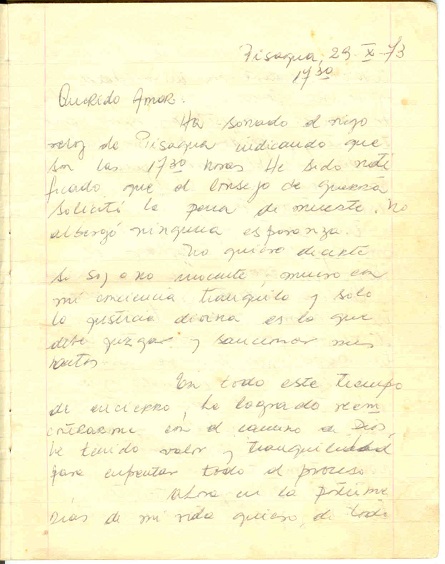 Pisagua, 29-X-73
17³⁰
Querido Amor.
Ha sonado el viejo
reloj de Pisagua indicando que
son las 17³⁰ horas He sido noti
ficado que el Consejo de guerra
solicitó la pena de muerte. No
albergo ninguna esperanza.
No quiero decirte
si soy o no inocente, muero con
mi conciencia tranquila y solo
la justicia divina es la que
debe juzgar y sancionar mis
En todo este tiempo
de encierro, he logrado reen
contrarme con el camino de Dios,
he tenido valor y tranquilidad
para enfrentar todo el proceso.
Ahora en los
días de mi vida quiero, de todo